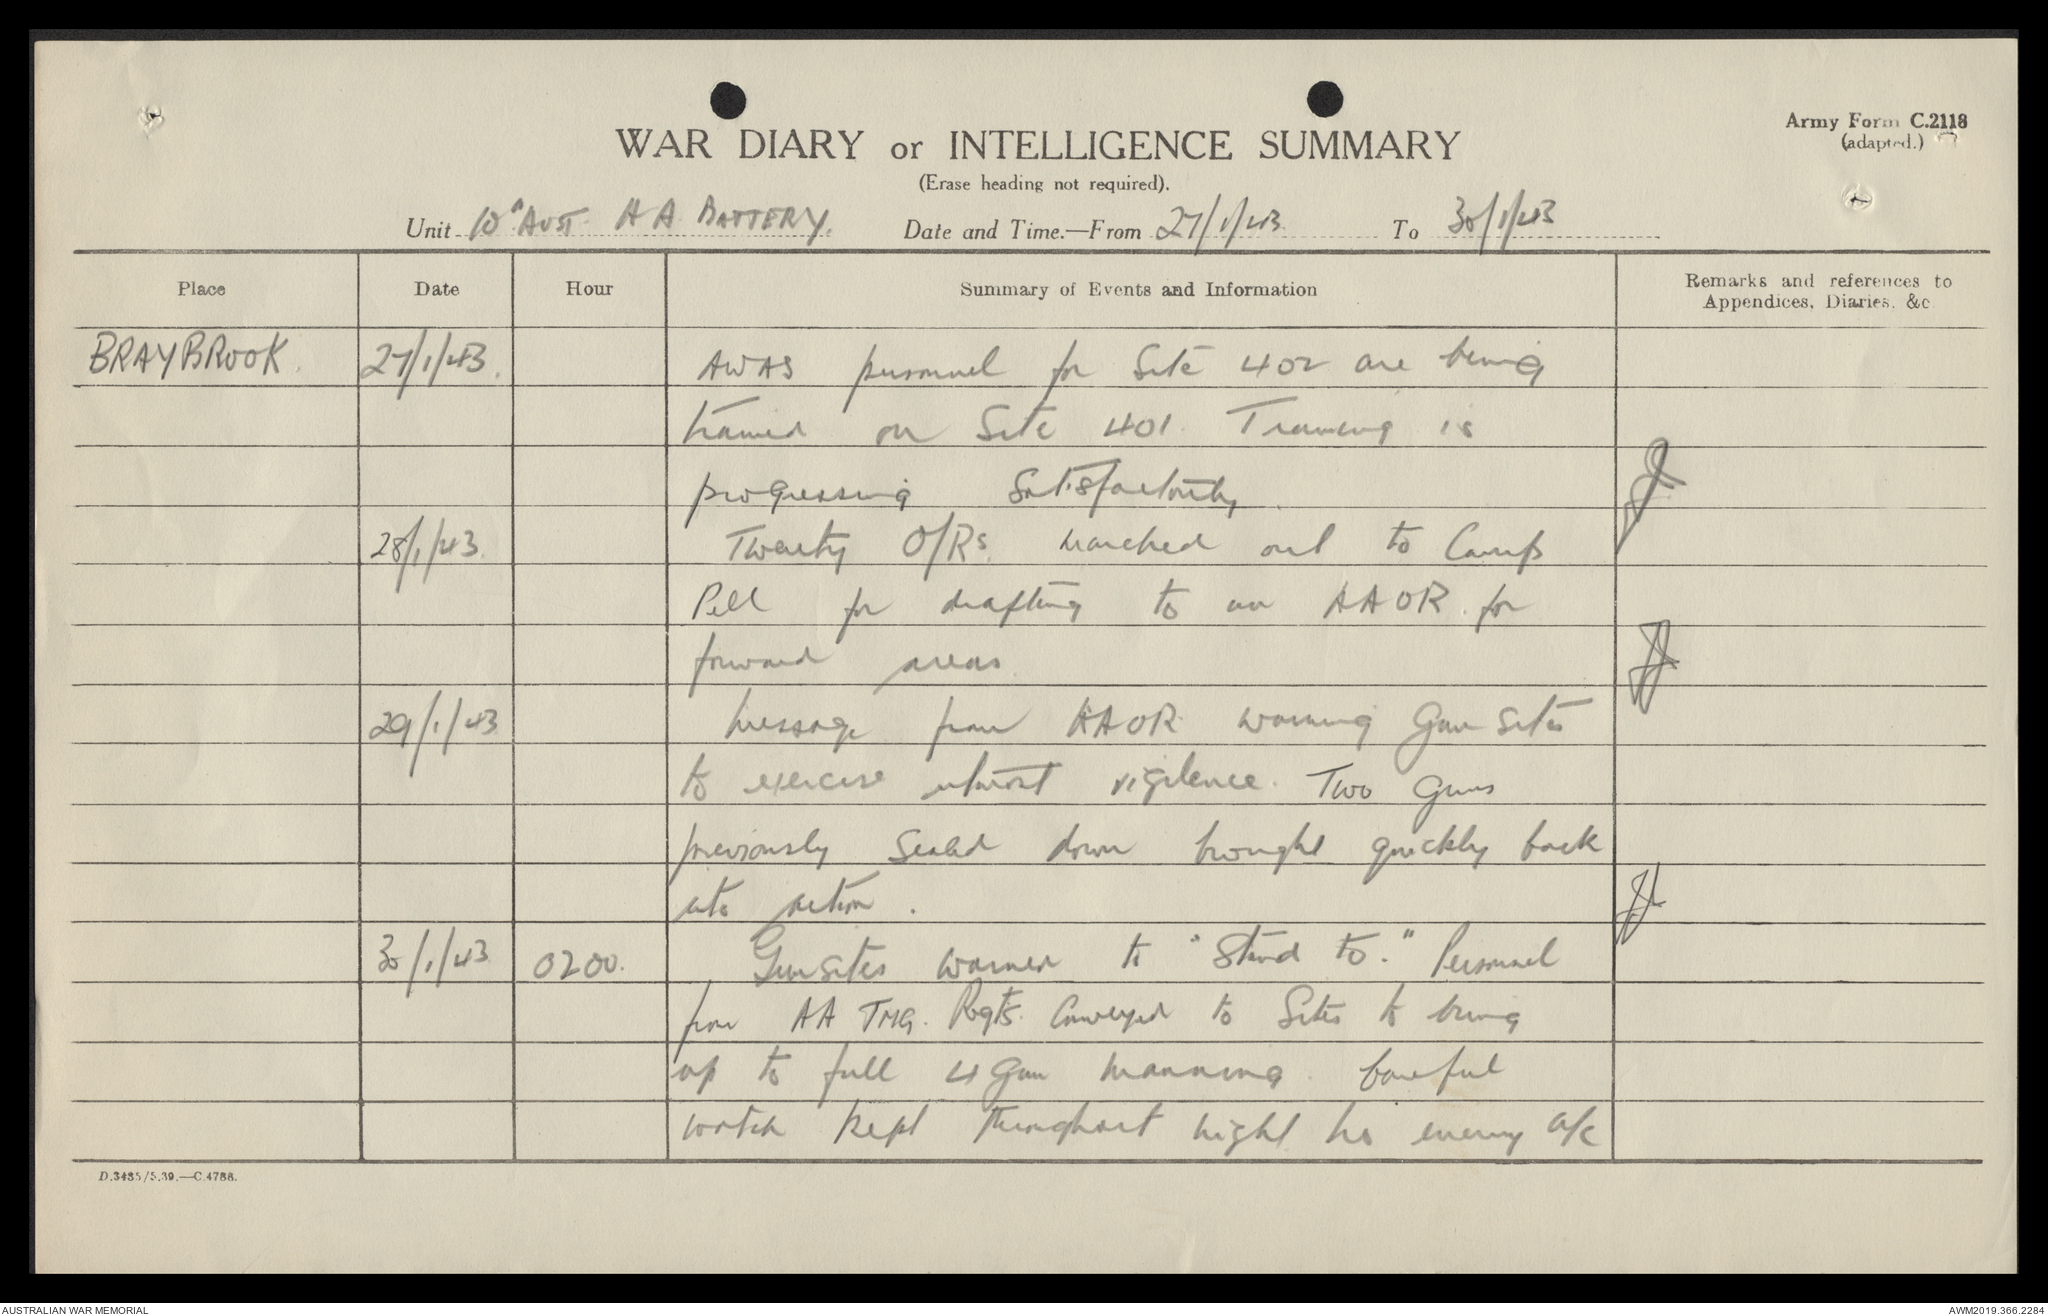 Army Form C.2118
(adapted.)
WAR DIARY or INTELLIGENCE SUMMARY
(Erase heading not required).
Unit 10" AUST. AA BATTERY. Date and Time.—From 27/1/43 To 30/1/43
Place Date Hour Summary of Events and Information Remarks and references to Appendices, Diaries, &c
BRAYBROOK. 27/1/43. AWAS personnel for Site 402 are being
trained on Site 401. Training is
progressing satisfactorily
28/1/43. Twenty O/Rs. marched out to Camp
Pell for drafting to an AAOR. for
forward areas
29/1/43 Message from AAOR warning Gun Sites
to exercise utmost vigilence. Two Guns
previously sealed down brought quickly back
into action.
30/1/43 0200. Gunsites warned to "Stand to." Personnel
from AA TNG. Regts. conveyed to Sites to bring
up to full 4 Gun manning. Careful
watch kept throughout night no enemy a/c
D.3435/5.39.—C.4788.
AUSTRALIAN WAR MEMORIAL AWM2019.366.2284